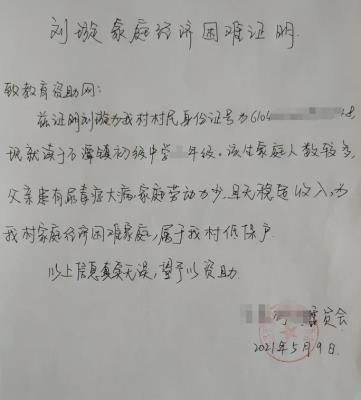 刘璇家庭经济困难证明
致教育资助网:
兹证明刘璇为我村村民身份证号为6104
现就读于石潭镇初级中学 年级。该生家庭人数较多,
父亲患有尿毒症大病,家庭劳动力少,且无稳定收入,为
我村家庭经济困难家庭,属于我村低保户
以上信息真实无误,望予以资助.
委员会
2021年5月9日.